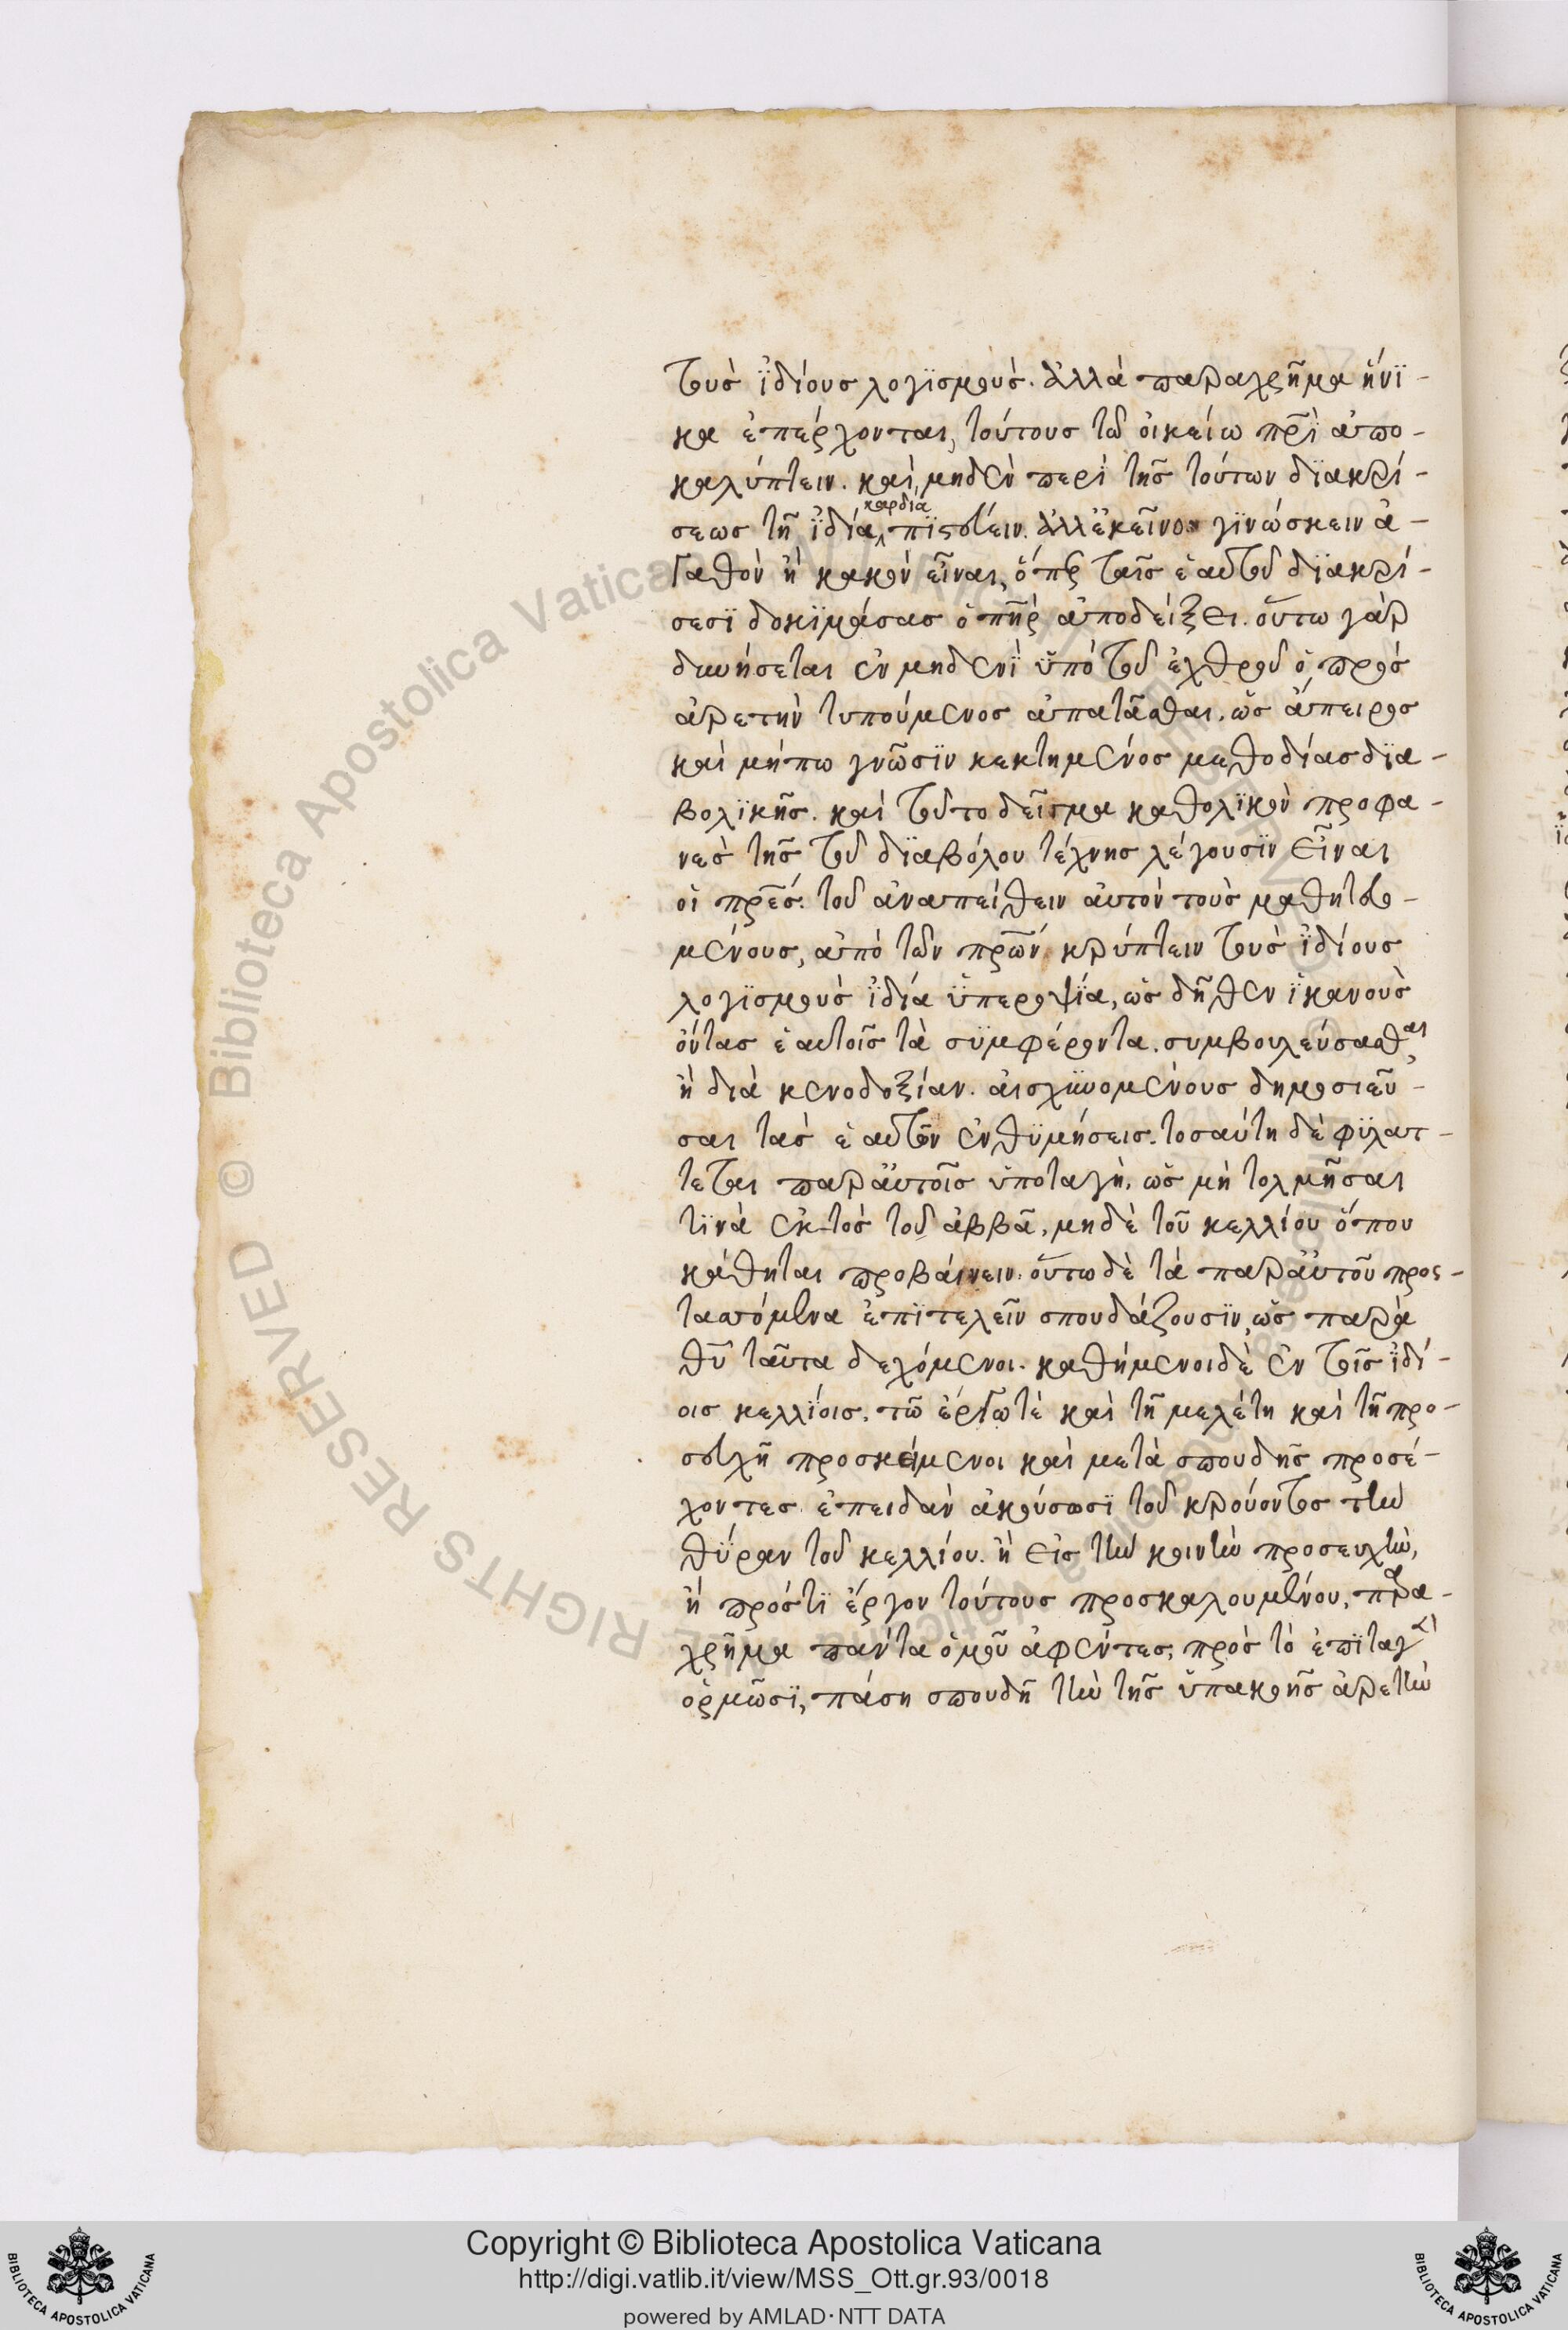 τοὺσ ϊδίουσ λογϊσμοὺσ. ἀλλὰ παραχρῆμα ἡνϊ-
κα ἐπέρχονται, τούτουσ τῶ οἰκείω πρ̅ὶ ἀπο-
καλύπτειν. καὶ, μηδὲν περὶ τῆσ τούτων δϊακρί-
σεωσ τῆ ϊδία καρδία πϊστεύειν. ἀλλἐκεῖνο γϊνώσκειν ἀ-
γαθὸν ἢ κακὸν εἶναι, ὅπερ ταῖσ ἑαυτοῦ δϊακρί-
σεσϊ δοκϊμάσασ ὁ πη̅ρ ἀποδείξει. οὕτω γὰρ
δυνήσεται ἐν μηδενϊ ὑπὸ τοῦ ἐχθροῦ ὁ πρὸσ
ἀρετὴν τυπούμενοσ ἀπατᾶσθαι. ὡσ ἄπειροσ
καὶ μήπω γνῶσϊν κεκτημένοσ μεθοδίασ δϊα-
βολϊκῆσ. καὶ τοῦτο δεῖσμα καθολϊκὸν προφα-
νεσ τῆσ τοῦ δϊαβόλου τέχνησ λέγουσϊν εἶναι
οἱ πρ̅έσ. τοῦ ἀναπείθειν αὐτὸν τοὺσ μαθητευο-
μένουσ, ἀπὸ τῶν πρ̅ων κρύπτειν τοὺσ ϊδίουσ
λογϊσμοὺσ ϊδία ϋπεροψϊα, ὡσ δῆθεν ϊκανοὺσ
ὄντασ ἑαυτοῖσ τὰ σϋμφέροντα. συμβουλεύσασθαι
ἢ διὰ κενοδοξίαν. αἰσχϋνομένουσ δημοσιεῦ-
σαι τὰσ ἑαυτῶν ἐνθϋμήσεισ. τοσαύτη δὲ φϋλατ-
τεται παραὐτοῖσ ὑποταγὴ, ὡσ μὴ τολμῆσαι
τϊνὰ ἐκτὸσ τοῦ ἀββᾶ, μηδὲ τοῦ κελλίου ὅπου
κάθηται προβαίνειν. οὕτω δὲ τὰ παραὐτοῦ προς-
ταττόμενα ἐπϊτελεῖν σπουδάζουσϊν, ὡσ παρὰ
θ̅υ ταῦτα δεχόμενοι. καθήμενοι δὲ ἐν τοῖσ ϊδί-
οισ κελλϊοισ. τῶ ἐργωτὲ καὶ τῆ μελέτη καὶ τῆ προ-
σευχῆ προσκείμενοι καὶ μετὰ σπουδῆσ προσέ-
χοντεσ ἐπειδὰν ἀκούσωσϊ τοῦ κρούοντοσ τὴν
θϋραν τοῦ κελλίου. ἢ εἰσ τὴν κοινὴν προσευχὴν,
ἢ πρόστϊ ἔργον τούτουσ προσκαλουμένου, παρα-
χρῆμα πάντα ὁμοῦ ἀφέντεσ, πρὸσ τὸ ἐπϊταγὲν
ὁρμῶσϊ, πάση σπουδῆ τὴν τῆσ ὑπακοῆσ ἀρετὴν
Copyright © Biblioteca Apostolica Vaticana
http://digi.vatlib.it/view/MSS_Ott.gr.93/0018
powered by AMLAD·NTT DATA